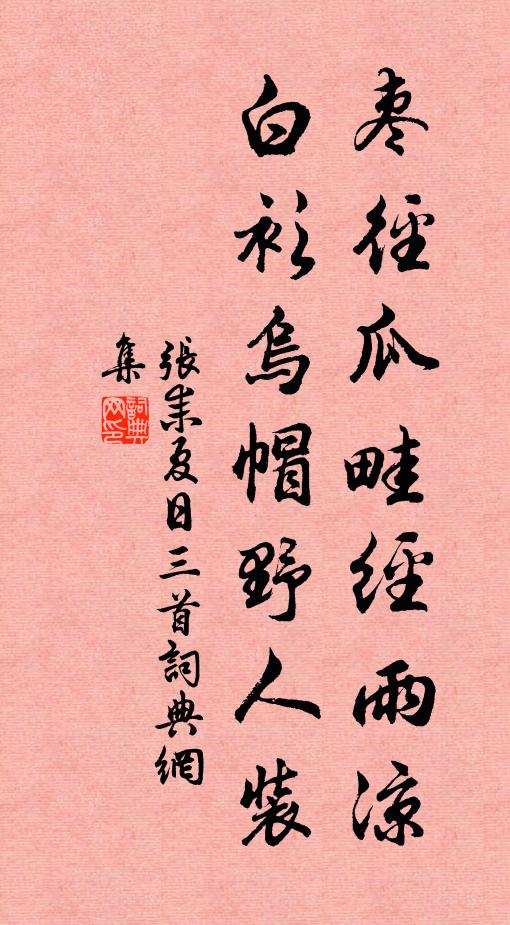 枣徑瓜畦經雨凉
白衫烏帽野人裝
張耒夏日三首詞典網
集
詞典
网印